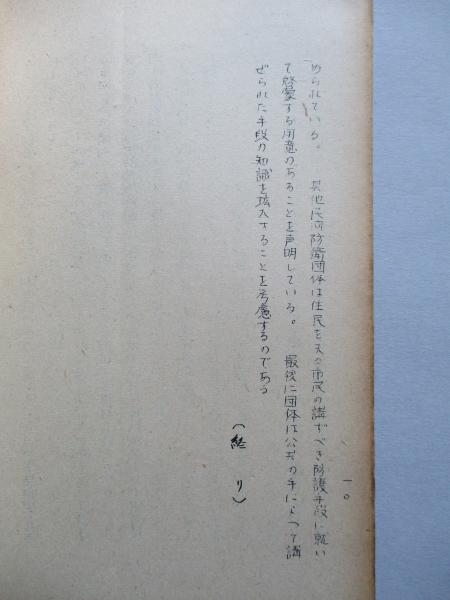 められている。　其他民間防衛団体は住民を夫々市民の講ずべき防護手段に就い
て啓蒙する用意のあることを声明している。　最後に団体は公共の手によって講
ぜられた手段の知識を拡大することを考慮するのである
（終り）
一〇